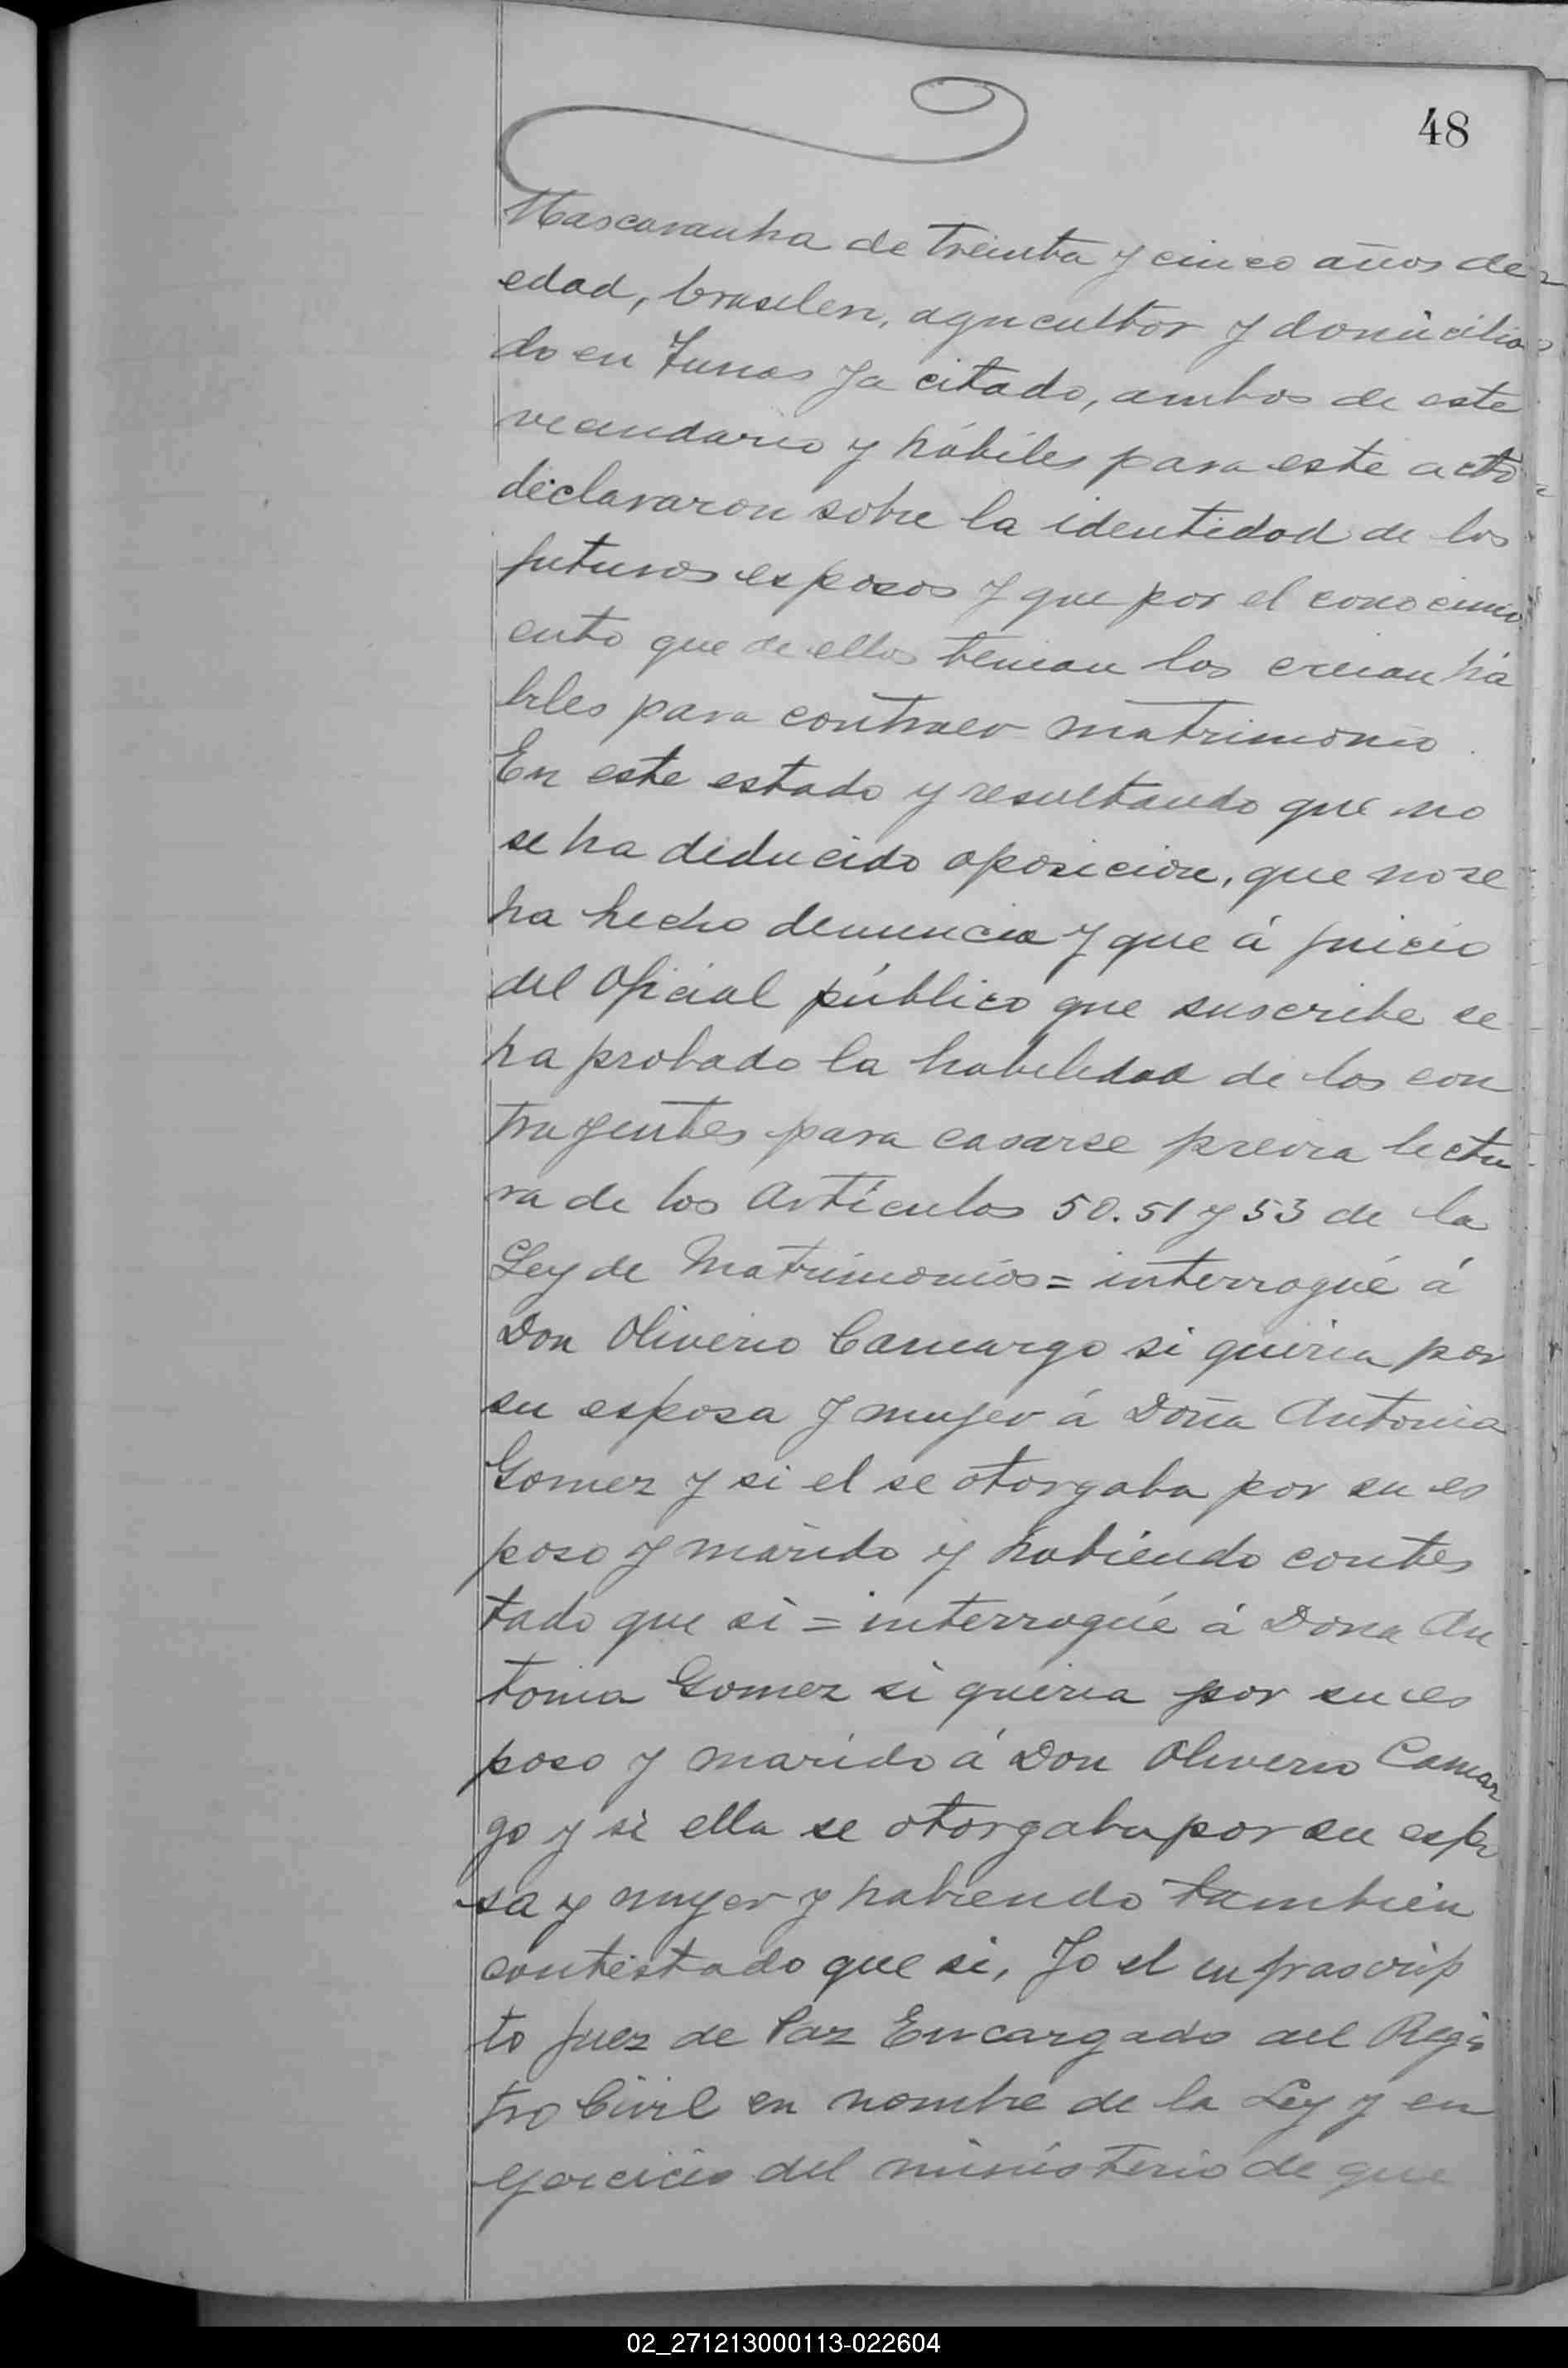 48
Mascaranha de treinta y cinco años de
edad, brasilen, agricultor y domicilia
do en Tunas ya citado, ambos de este
vecindario y hábiles para este acto
declararon sobre la identidad de los
futuros esposos y que por el conocimi
ento que de ellos tenian los creian há
biles para contraer matrimonio
En este estado y resultando que no
se ha deducido oposicion, que no se
ha hecho denuncia y que á juicio
del Oficial público que suscribe se
ha probado la habilidad de los con
trayentes para casarse previa lectu
ra de los Artículos 50. 51 y 53 de la
Ley de Matrimonios = interrogué á
Don Oliverio Camargo si queria por
su esposa y mujer á Doña Antonia
Gomez y si el se otorgaba por su es
poso y marido y habiendo contes
tado que si = interrogué á Dona An
tonia Gomez si queria por su es
poso y marido á Don Oliverio Camar
go y si ella se otorgaba por su espo
sa y mujer y habiendo tambien
contestado que si, Yo el infrascrip
to Juez de Paz Encargado del Regis
tro Civil en nombre de la Ley y en
ejercicio del ministerio de que
02_271213000113-022604